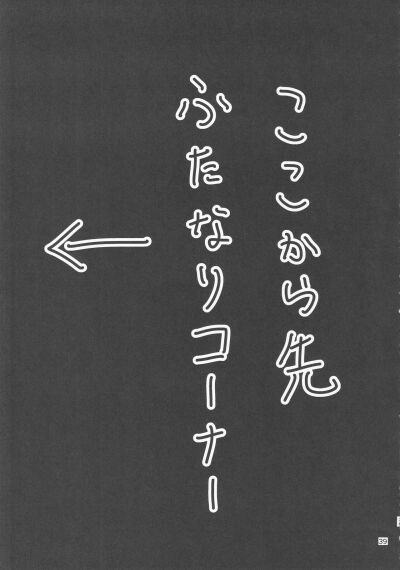 ここから先
ふたなりコーナー
39